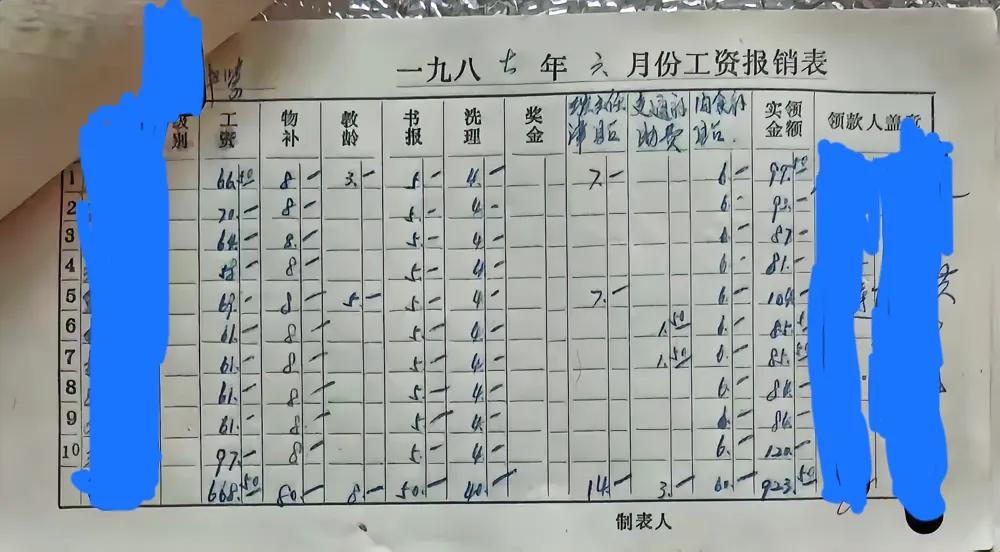 一九八七年六月份工资报销表
级别 工资 物补 教龄 书报 洗理 奖金 班主任津贴 交通补助费 肉食补贴 实领金额 领款人盖章
1 66.50 8.— 3.— 5.— 4.— 7.— 6.— 99.50
2 70.— 8.— 5.— 4.— 6.— 93.—
3 64.— 8.— 5.— 4.— 6.— 87.—
4 58.— 8.— 5.— 4.— 6.— 81.—
5 69.— 8.— 5.— 5.— 4.— 7.— 6.— 104.—
6 61.— 8.— 5.— 4.— 1.50 6.— 85.50
7 61.— 8.— 5.— 4.— 1.50 6.— 85.50
8 61.— 8.— 5.— 4.— 6.— 84.—
9 61.— 8.— 5.— 4.— 6.— 84.—
10 97.— 8.— 5.— 4.— 6.— 120.—
668.50 80.— 8.— 50.— 40.— 14.— 3.— 60.— 923.50
制表人